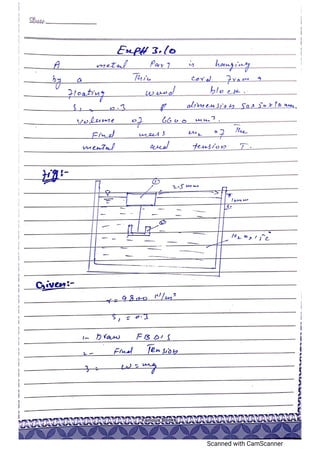 Date:
Exp# 3.10
A metal Part is hanging
by a Thin cord from a
Floating wood block.
S₁ = 0.3 & dimension 50x50x10 mm.
volume of 6600 mm³.
Find mass m₂ of The
mental and tension T.
Fig:-
①
25mm
10mm
②
H₂O, 15°C
Given:-
γ = 9800 N/m³
S₁ = 0.3
1- Draw FBD's
2- Find Tension
3- W = mg
Scanned with CamScanner